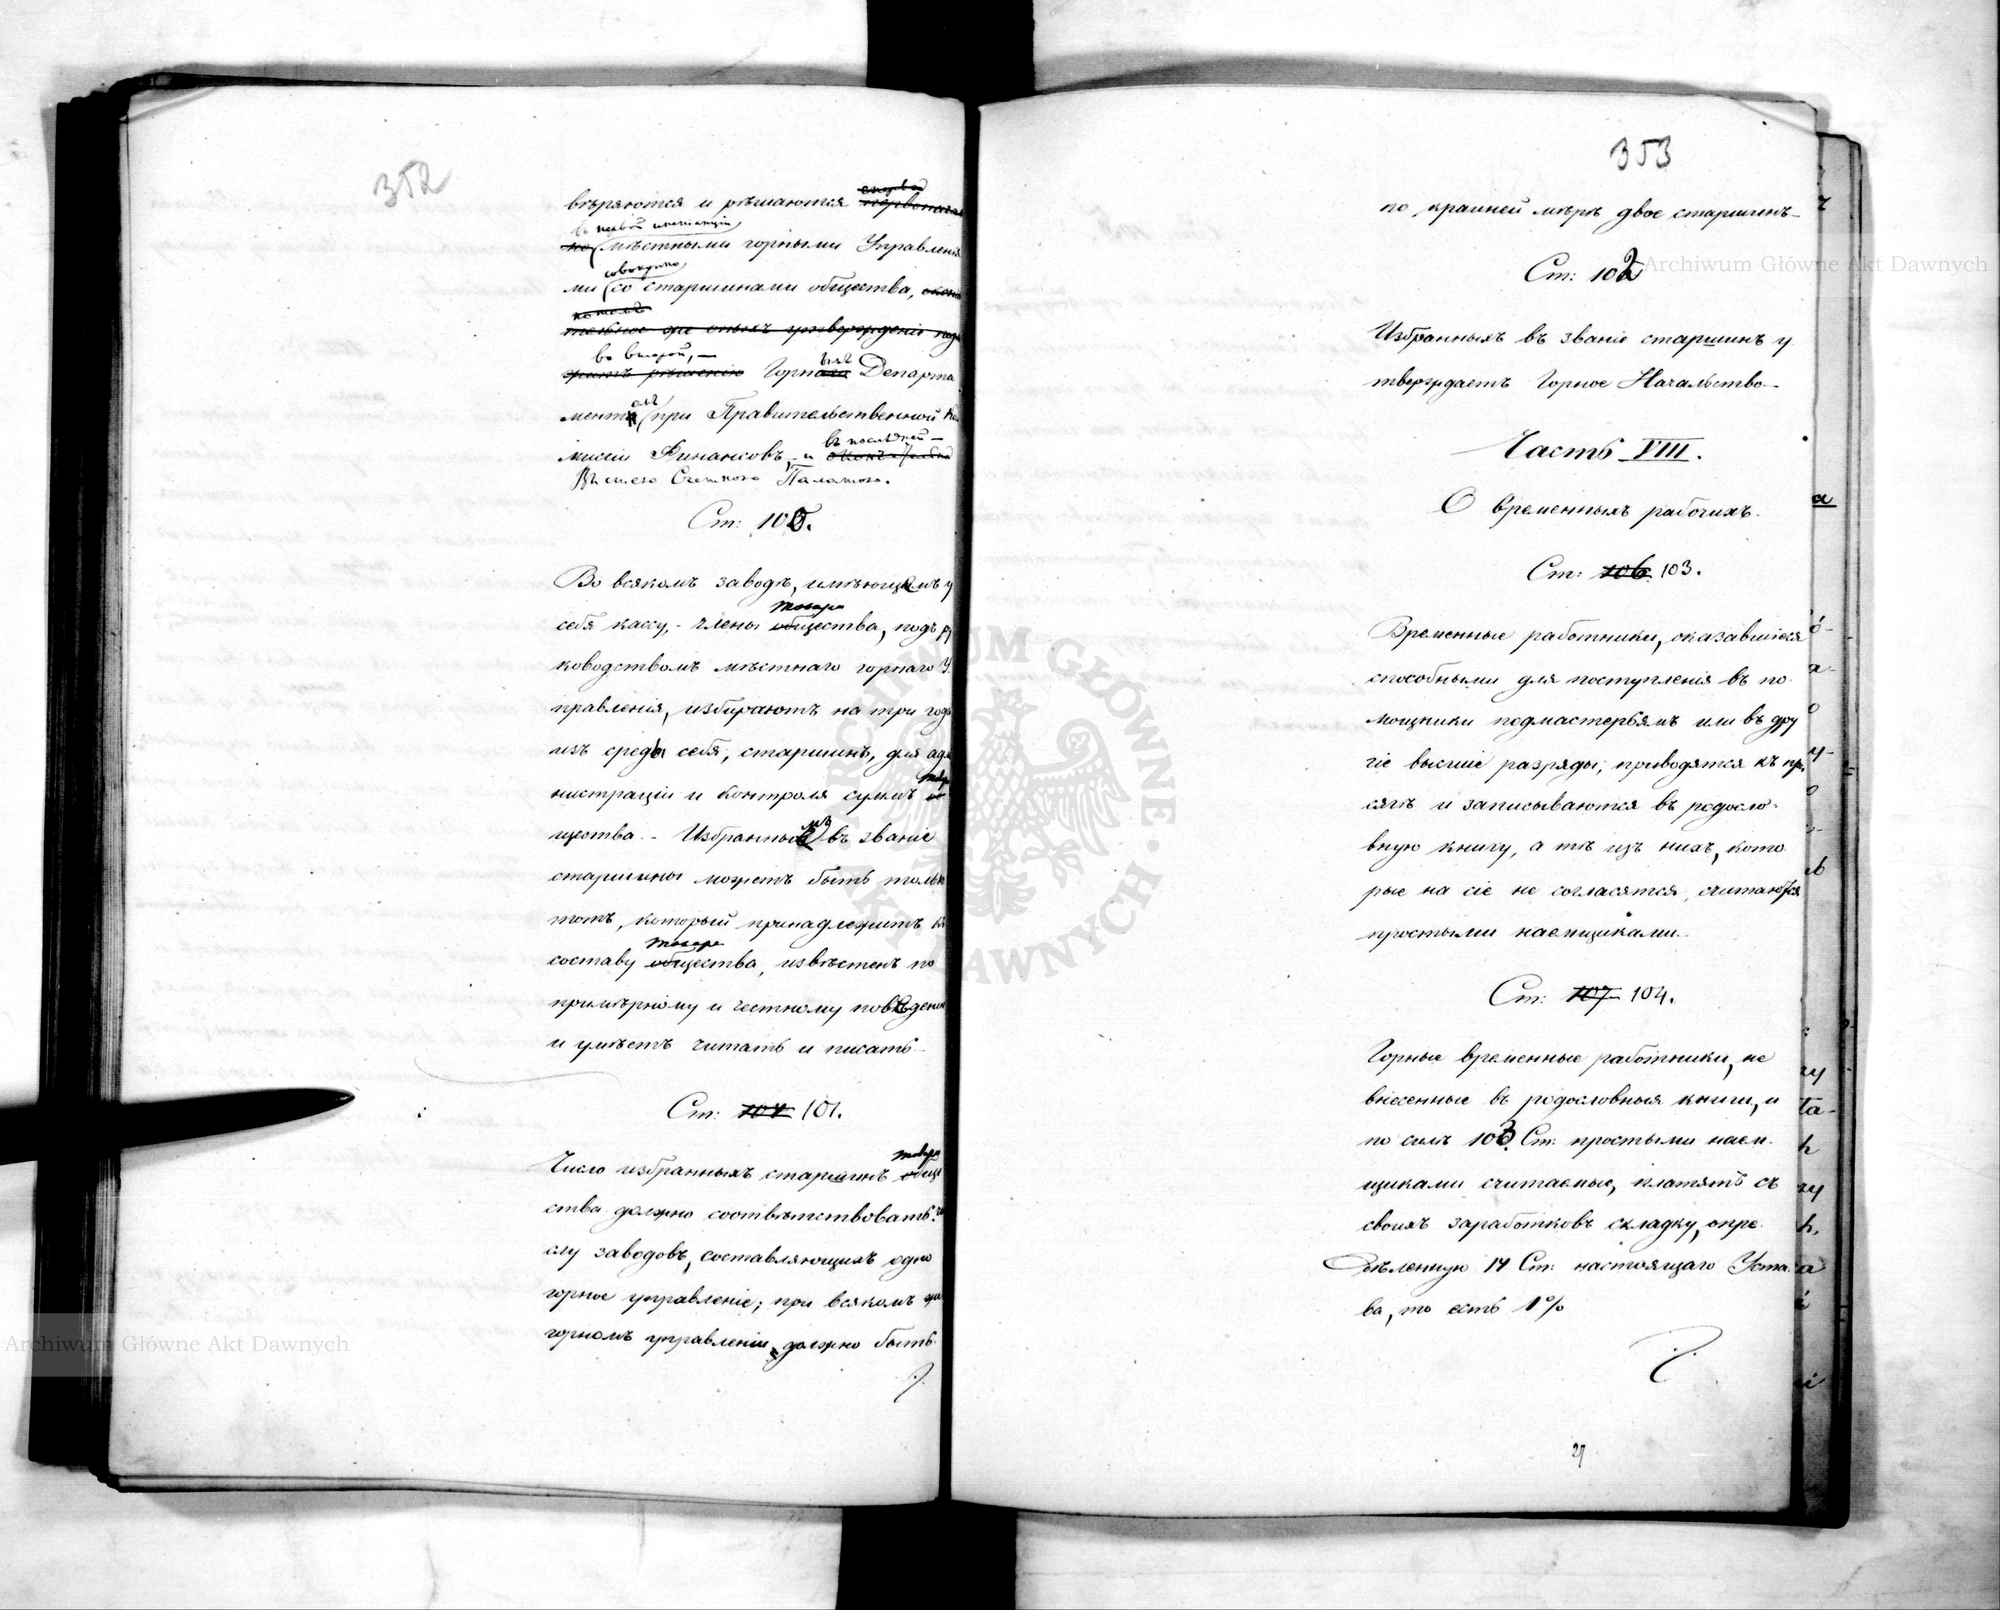 352
вѣряются и рѣшаются первонача
въ первой инстанціи
мѣстными горными Управленія
совокупно
ми со старшинами общества,
потомъ
тельное же оныхъ утвержденіе подле
во второй,
житъ рѣшенію Горнымъ Департа
ментомъ при Правительственной Ком
въ послѣдней
мисіи Финансовъ, и окончательно
Высшею Счетною Палатою.
Ст: 100.
Во всякомъ заводѣ, имѣющемъ у
товари
себя кассу, - члены общества, подъ ру
ководствомъ мѣстнаго горнаго У
правленія, избираютъ на три года
изъ среды себя, старшинъ, для адми
товари
нистраціи и контроля суммъ об
щества. - Избраннымъ въ званіе
старшины можетъ быть только
тотъ, который принадлежитъ къ
товари
составу общества, извѣстенъ по
примѣрному и честному поведенію
и умѣетъ читать и писать.
Ст: 104 101.
товари
Число избранныхъ старшинъ обще
ства должно соотвѣтствовать чи
слу заводовъ, составляющихъ одно
горное управленіе; при всякомъ же
горномъ управленіи должно быть
353
по крайней мѣрѣ двое старшинъ.
Ст: 102
Избранныхъ въ званіе старшинъ у
тверждаетъ Горное Начальство.
Часть VIII.
О временныхъ рабочихъ.
Ст: 106 103.
Временные работники, оказавшіеся
способными для поступленія въ по
мощники подмастерьямъ или въ дру
гіе высшіе разряды, приводятся къ при
сягѣ и записываются въ родосло-
вную книгу, а тѣ изъ нихъ, кото
рые на сіе не согласятся, считаются
простыми наемщиками.
Ст: 107 104.
Горные временные работники, не
внесенные въ родословныя книги, и
по силѣ 103 Ст: простыми наем-
щиками считаемые, платятъ съ
своихъ заработковъ складку, опре
дѣленную 14 Ст: настоящаго Уста
ва, то есть 1%
Archiwum Główne Akt Dawnych
Archiwum Główne Akt Dawnych
ARCHIWUM GŁÓWNE AKT DAWNYCH